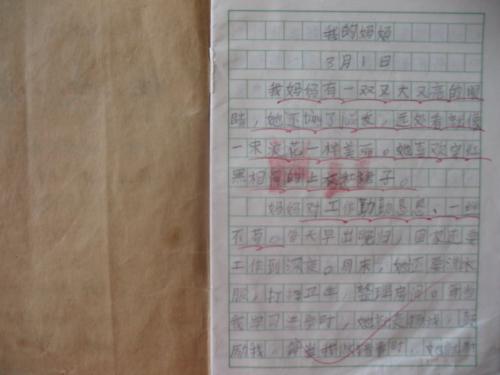 我的妈妈
3月1日
我妈妈有一双又大又亮的眼
睛，她烫了头发，远处看就像
一朵浪花一样美丽。她喜欢穿红
黑相间的上衣和裙子。
妈妈对工作勤勤恳恳、一丝
不苟。每天早出晚归，回家还要
工作到深夜。周末，她还要洗衣
服，打扫卫生，整理房间。
我学习
励我，每当我